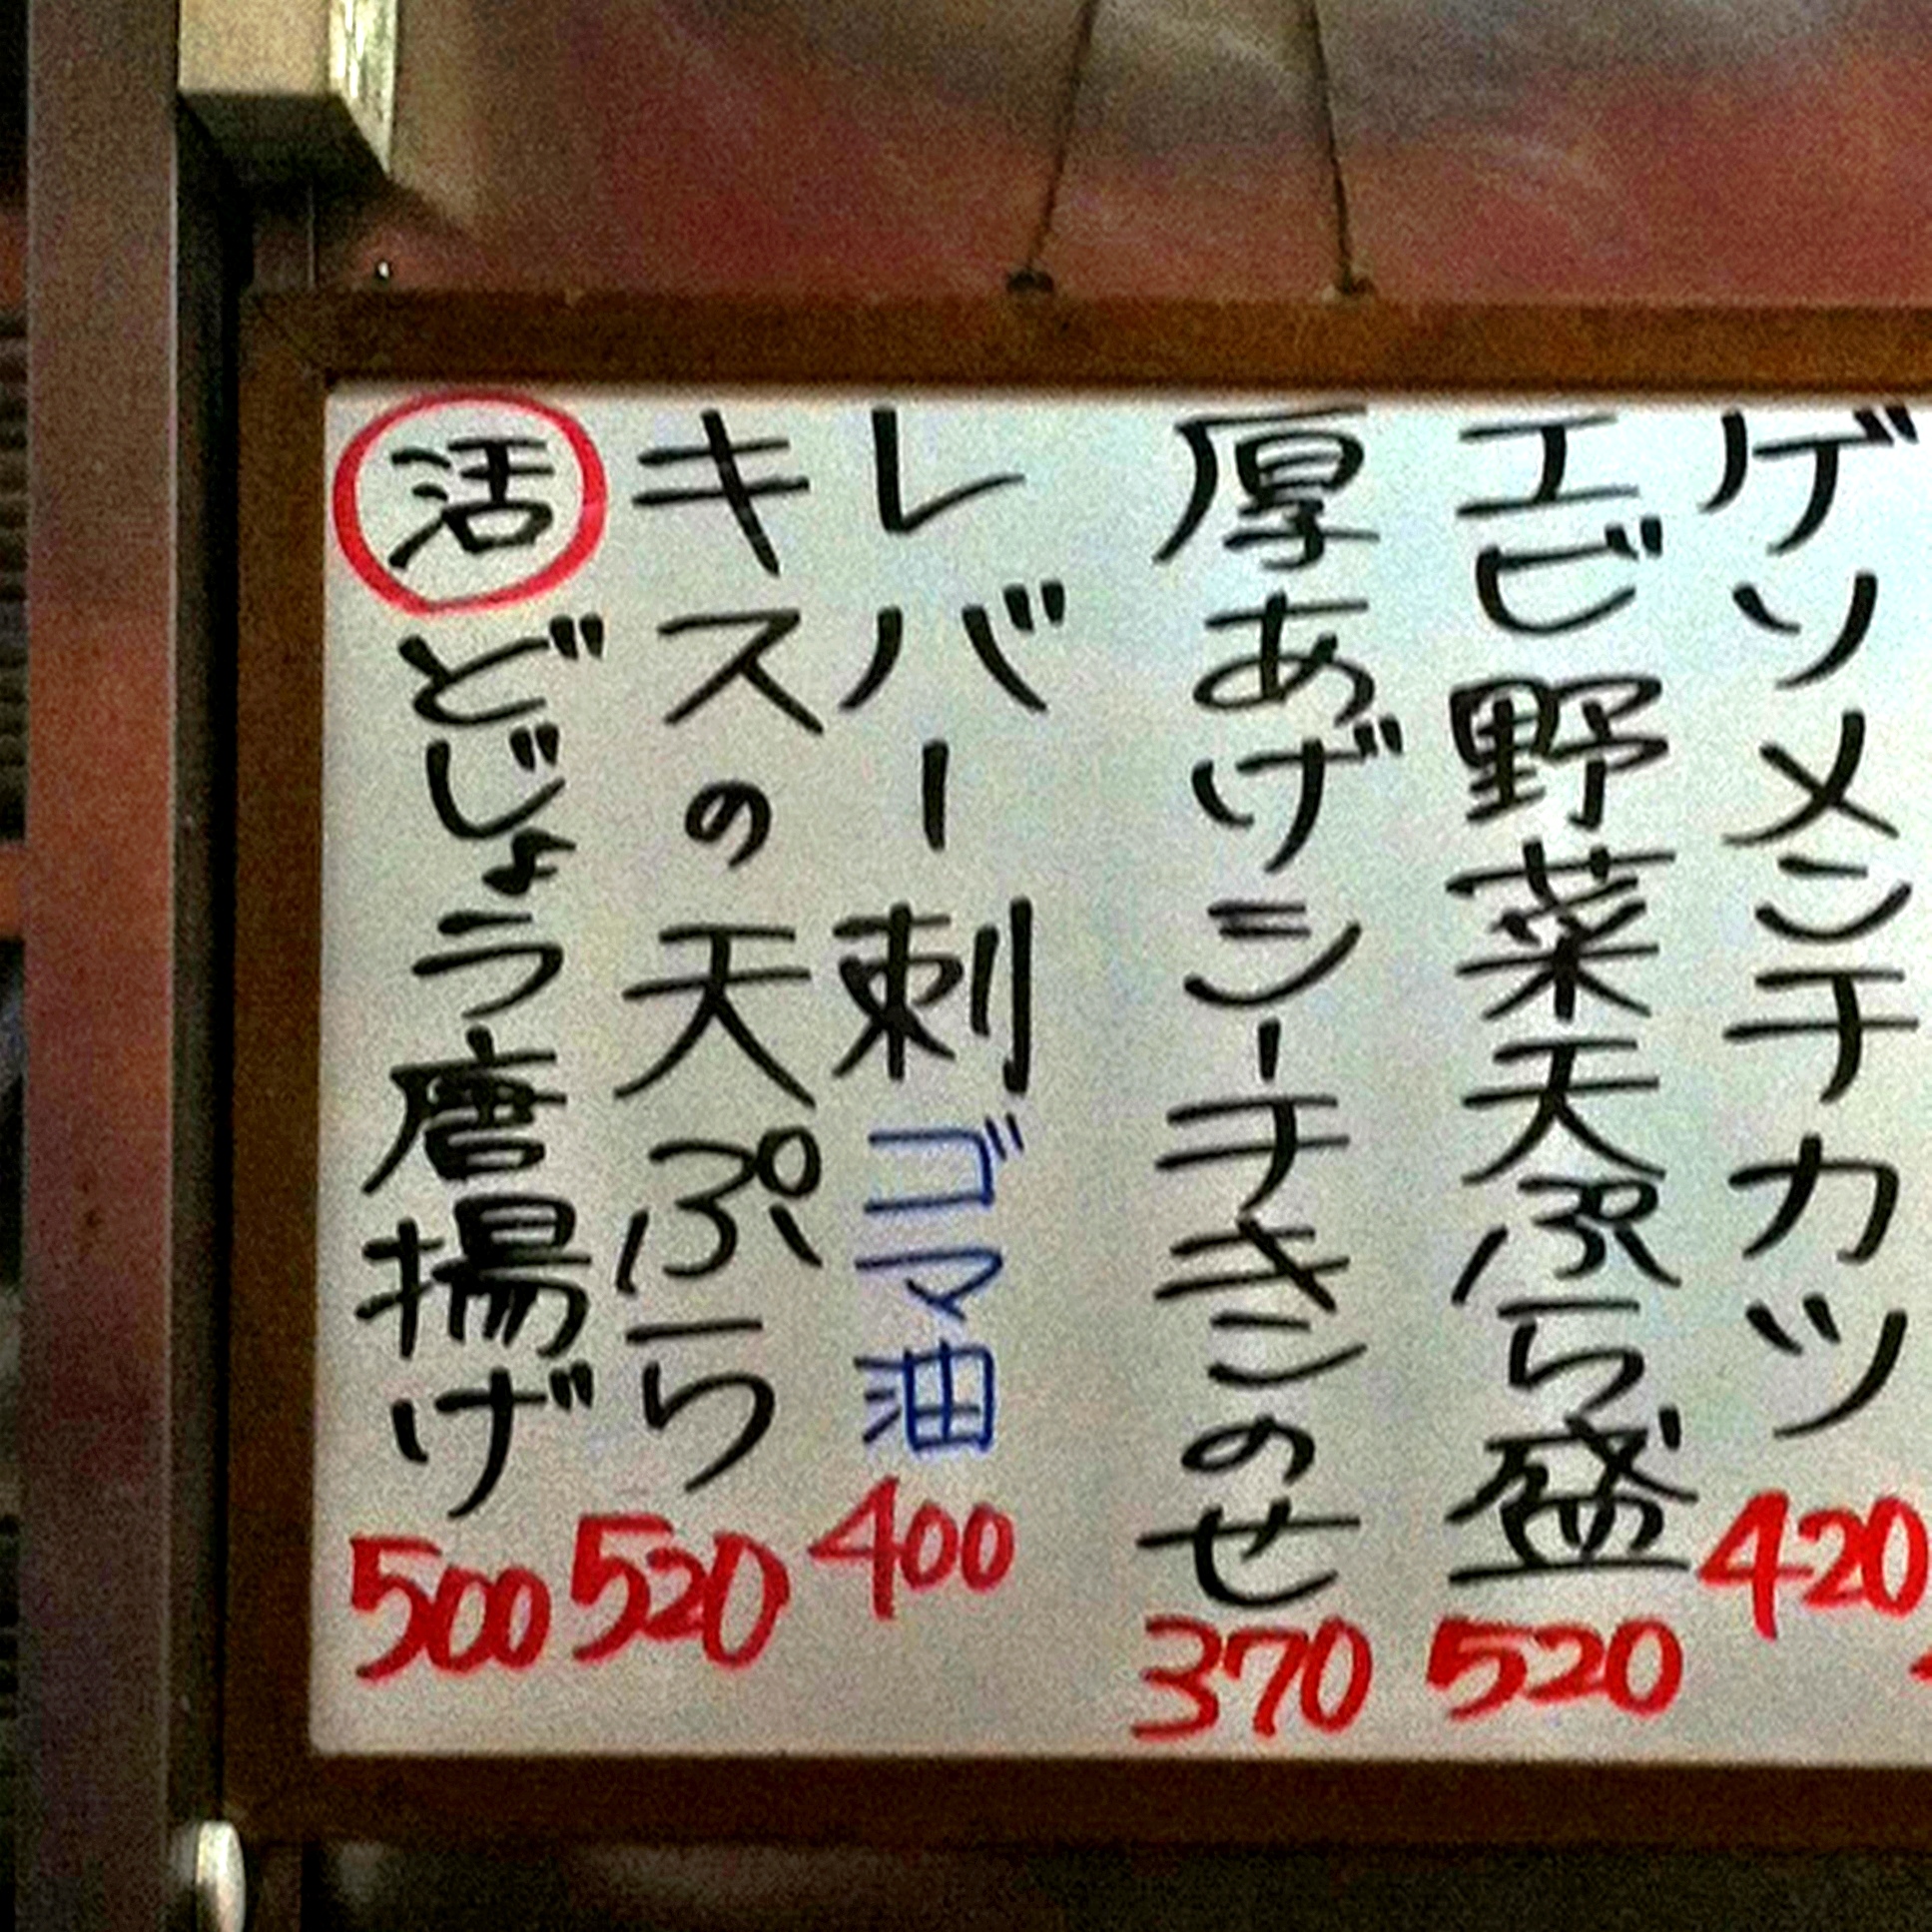 ゲソメンチカツ 420
エビ野菜天ぷら盛 520
厚あげシーチキンのせ 370
レバー刺 ゴマ油 400
キスの天ぷら 520
活 どじょう唐揚げ 500